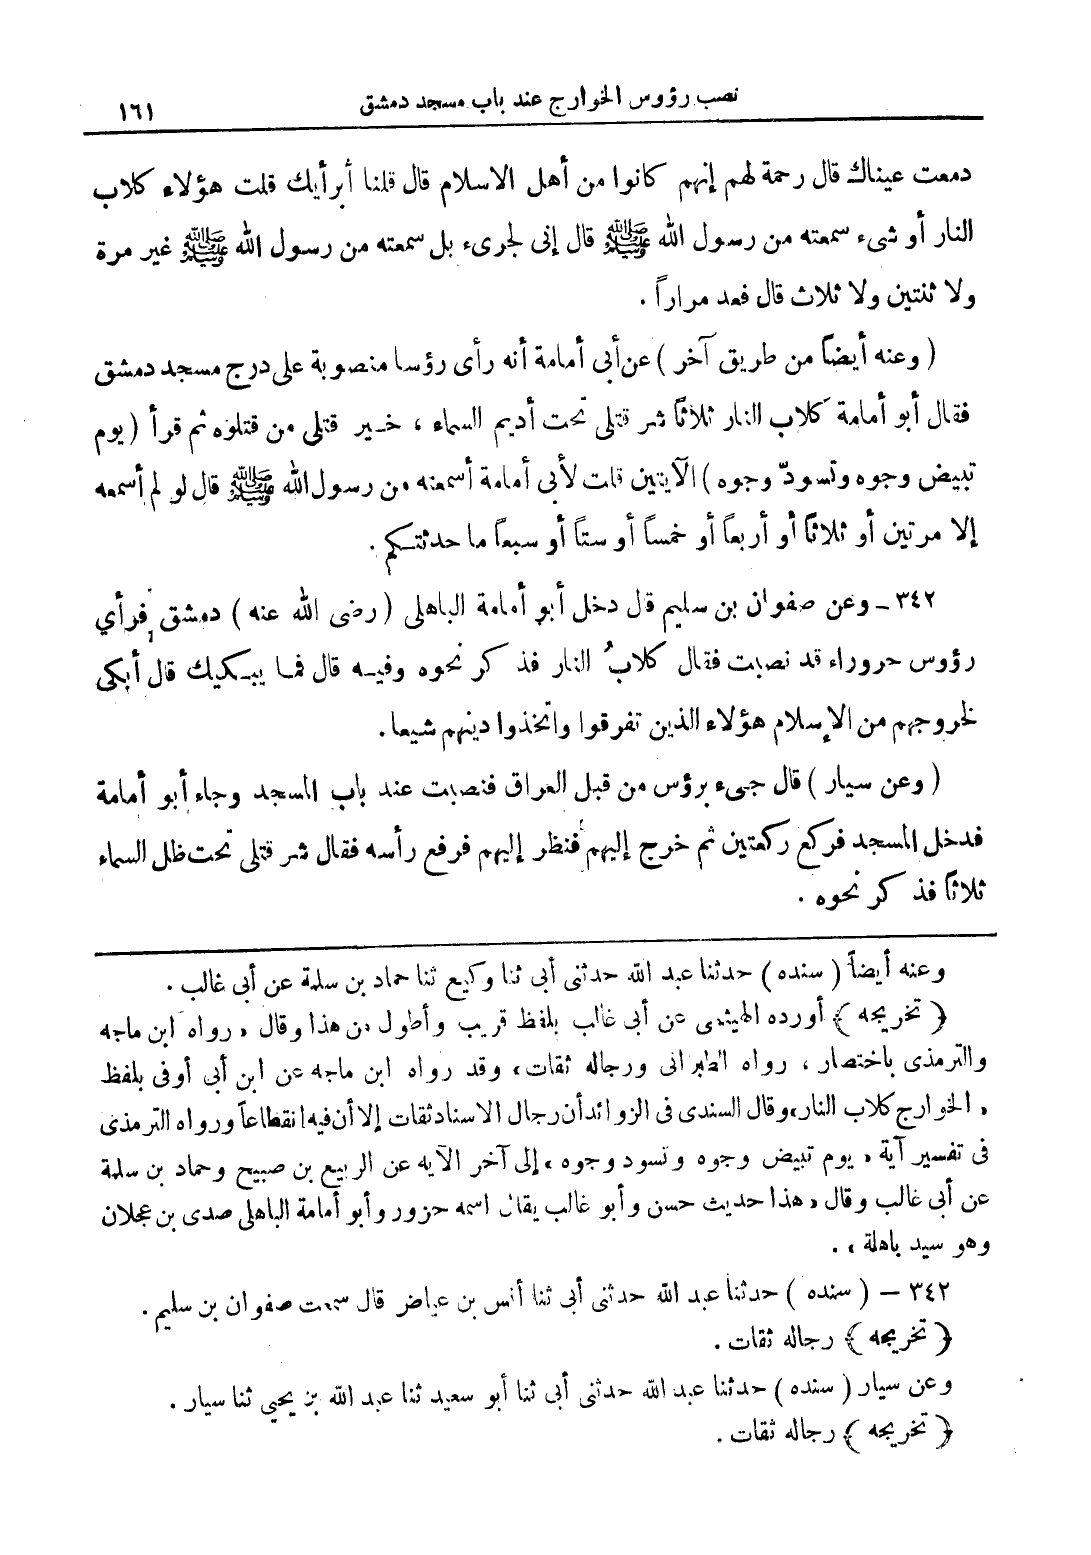 نصب رؤوس الخوارج عند باب مسجد دمشق ١٦١
دمعت عيناك قال رحمة لهم إنهم كانوا من أهل الاسلام قال قلنا أبرأيك قلت هؤلاء كلاب
النار أو شىء سمعته من رسول الله ﷺ قال إنى لجرىء بل سمعته من رسول الله ﷺ غير مرة
ولا ثنتين ولا ثلاث قال فعد مراراً .
( وعنه أيضاً من طريق آخر ) عن أبى أمامة أنه رأى رؤسا منصوبة على درج مسجد دمشق
فقال أبو أمامة كلاب النار ثلاثاً شر قتلى تحت أديم السماء ، خـير قتلى من قتلوه ثم قرأ ( يوم
تبيض وجوه وتسودّ وجوه ) الآيتين قلت لأبى أمامة أسمعته من رسول الله ﷺ قال لو لم أسمعه
إلا مرتين أو ثلاثاً أو أربعاً أو خمساً أو ستاً أو سبعاً ما حدثتـكم .
٣٤٢ - وعن صفوان بن سليم قال دخل أبو أمامة الباهلى ( رضى الله عنه ) دمشق فرأي
رؤوس حروراء قد نصبت فقال كلابُ النار فذكر نحوه وفيـه قال فما يبـكيك قال أبكى
لخروجهم من الإسلام هؤلاء الذين تفرقوا واتخذوا دينهم شيعا.
( وعن سيار ) قال جىء برؤس من قبل العراق فنصبت عند باب المسجد وجاء أبو أمامة
فدخل المسجد فركع ركعتين ثم خرج إليهم فنظر إليهم فرفع رأسه فقال شر قتلى تحت ظل السماء
ثلاثاً فذكر نحوه .
وعنه أيضاً ( سنده ) حدثنا عبد الله حدثنى أبى ثنا وكيع ثنا حماد بن سلمة عن أبى غالب .
﴿ تخريجه ﴾ أورده الهيثمى عن أبى غالب بلفظ قريب وأطول من هذا وقال « رواه ابن ماجه
والترمذى باختصار ، رواه الطبرانى ورجاله ثقات » وقد رواه ابن ماجه عن ابن أبى أوفى بلفظ
« الخوارج كلاب النار » وقال السندى فى الزوائد أن رجال الاسناد ثقات إلا أن فيه انقطاعاً ورواه الترمذى
فى تفسير آية « يوم تبيض وجوه وتسود وجوه » إلى آخر الآيه عن الربيع بن صبيح وحماد بن سلمة
عن أبى غالب وقال « هذا حديث حسن وأبو غالب يقال اسمه حزور وأبو أمامة الباهلى صدى بن عجلان
وهو سيد باهلة » .
٣٤٢ – ( سنده ) حدثنا عبد الله حدثنى أبى ثنا أنس بن عياض قال سمعت صفوان بن سليم .
﴿ تخريجه ﴾ رجاله ثقات .
وعن سيار ( سنده ) حدثنا عبد الله حدثنى أبى ثنا أبو سعيد ثنا عبد الله بن يحيى ثنا سيار .
﴿ تخريجه ﴾ رجاله ثقات .